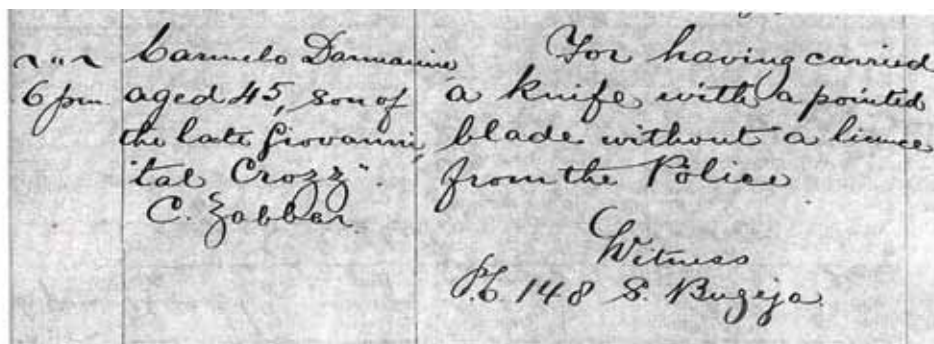 ~ " ~
6 pm
Carmelo Darmanin,
aged 45, son of
the late Giovanni,
"tal Crozz".
C. Zabbar.
For having carried
a knife with a pointed
blade without a licence
from the Police
Witness
P.C 148 S. Bugeja